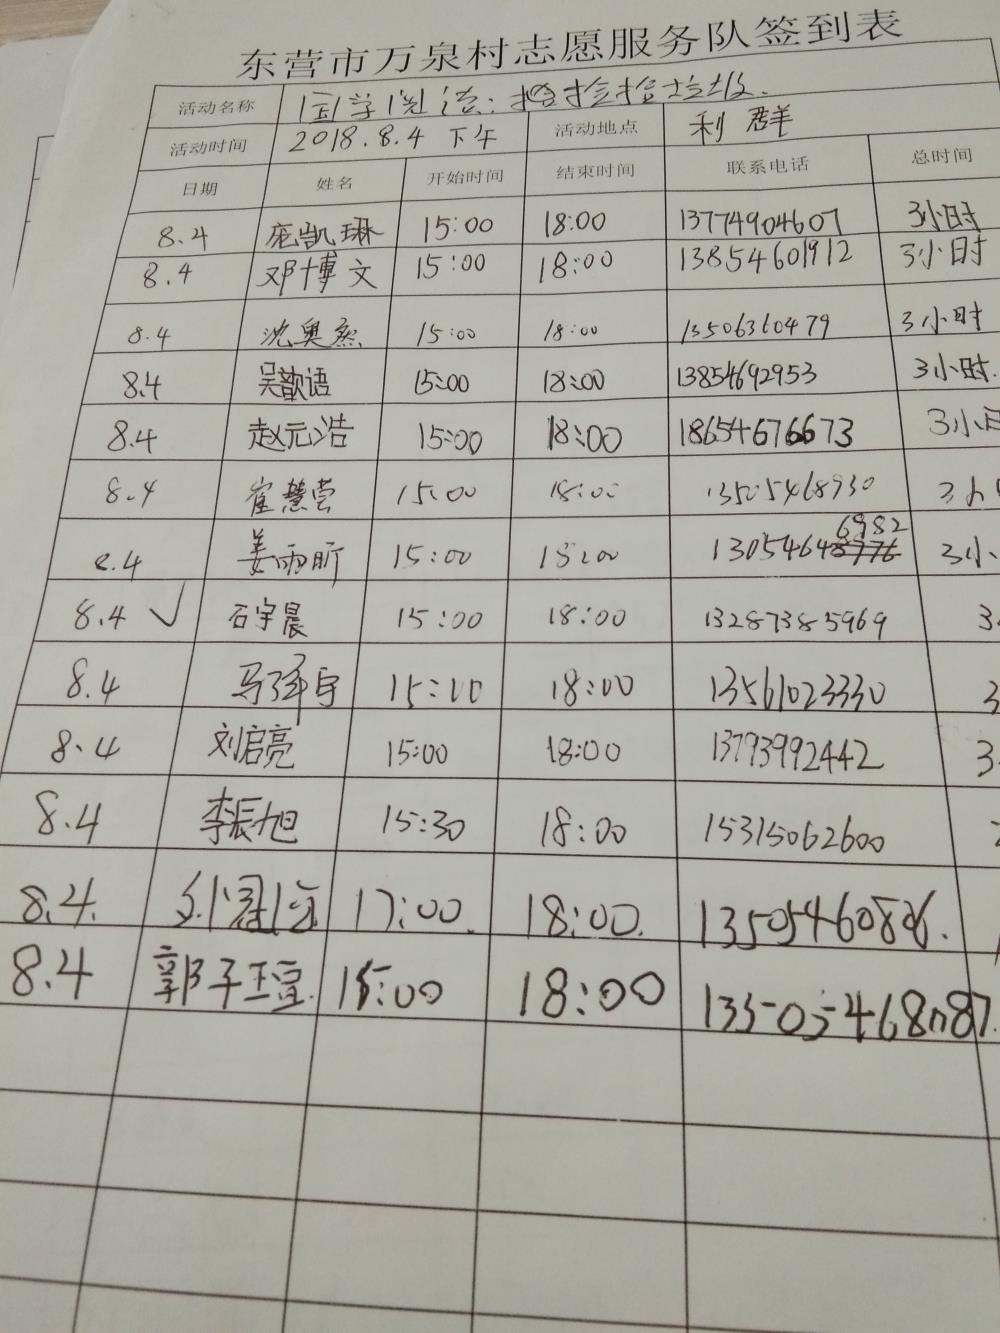 东营市万泉村志愿服务队签到表
活动名称 国学
活动时间 2018.8.4 下午 活动地点 利群
日期 姓名 开始时间 结束时间 联系电话 总时间
8.4 庞凯琳 15:00 18:00 13774904607 3小时
8.4 邓博文 15:00 18:00 13854601912 3小时
8.4 沈奥 15:00 18:00 13506360479 3小时
8.4 吴歆语 15:00 18:00 13854692953 3小时.
8.4 赵元浩 15:00 18:00 18654676673 3小
8.4 崔慧 15:00 18:00 13505468930 3小
8.4 姜雨昕 15:00 18:00 1305464 6982 3小
8.4 ✓ 石宇晨 15:00 18:00 13287385969 3
8.4 马泽宇 15:00 18:00 13561023330 3
8.4 刘启亮 15:00 18:00 13793992442 3
8.4 李振旭 15:30 18:00 15315062600
8.4. 17:00. 18:00.
8.4 郭子 15:00 18:00